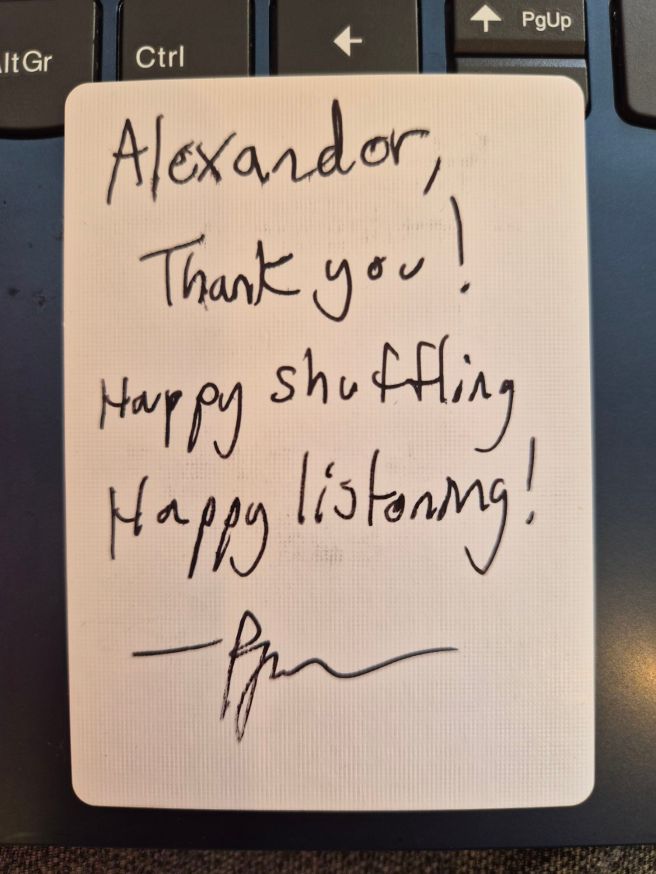 AltGr
Ctrl
←
↑ PgUp
Alexander,
Thank you!
Happy shuffling
Happy listening!